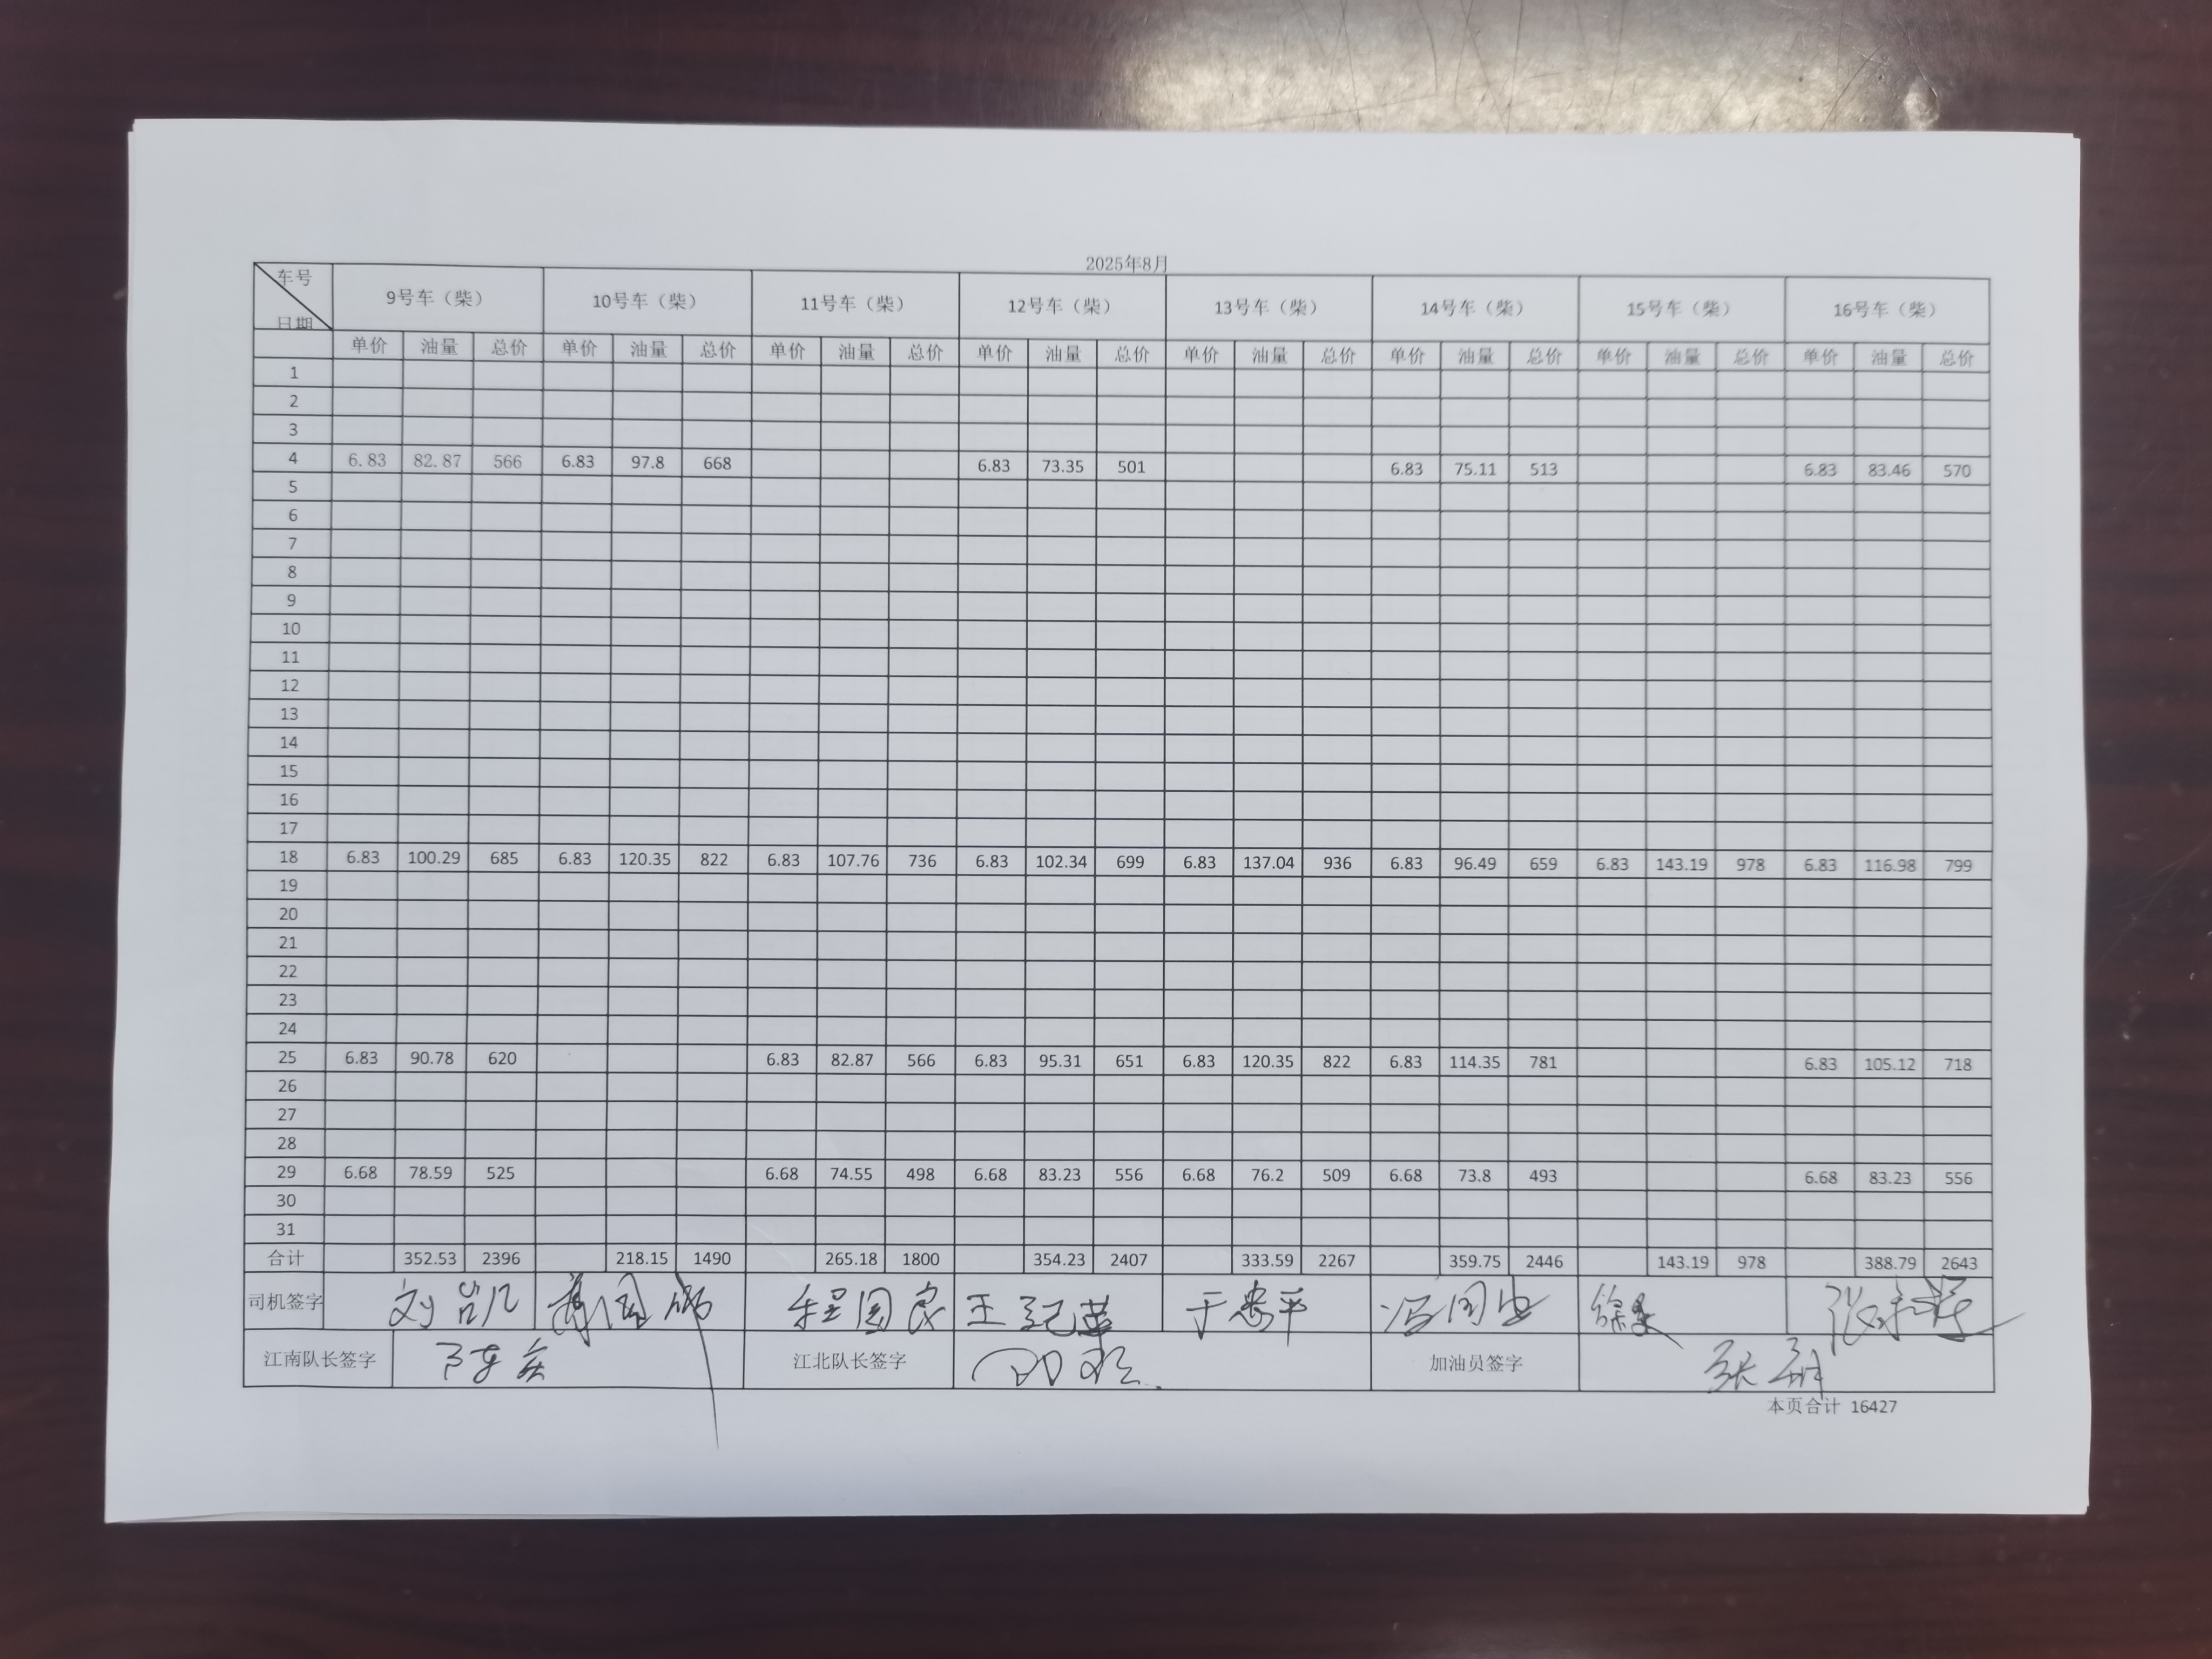 2025年8月
车号 9号车（柴） 10号车（柴） 11号车（柴） 12号车（柴） 13号车（柴） 14号车（柴） 15号车（柴） 16号车（柴）
日期
单价 油量 总价 单价 油量 总价 单价 油量 总价 单价 油量 总价 单价 油量 总价 单价 油量 总价 单价 油量 总价 单价 油量 总价
1
2
3
4 6.83 82.87 566 6.83 97.8 668 6.83 73.35 501 6.83 75.11 513 6.83 83.46 570
5
6
7
8
9
10
11
12
13
14
15
16
17
18 6.83 100.29 685 6.83 120.35 822 6.83 107.76 736 6.83 102.34 699 6.83 137.04 936 6.83 96.49 659 6.83 143.19 978 6.83 116.98 799
19
20
21
22
23
24
25 6.83 90.78 620 6.83 82.87 566 6.83 95.31 651 6.83 120.35 822 6.83 114.35 781 6.83 105.12 718
26
27
28
29 6.68 78.59 525 6.68 74.55 498 6.68 83.23 556 6.68 76.2 509 6.68 73.8 493 6.68 83.23 556
30
31
合计 352.53 2396 218.15 1490 265.18 1800 354.23 2407 333.59 2267 359.75 2446 143.19 978 388.79 2643
司机签字 程国良 王纪英 于忠平
江南队长签字 江北队长签字 加油员签字
本页合计 16427